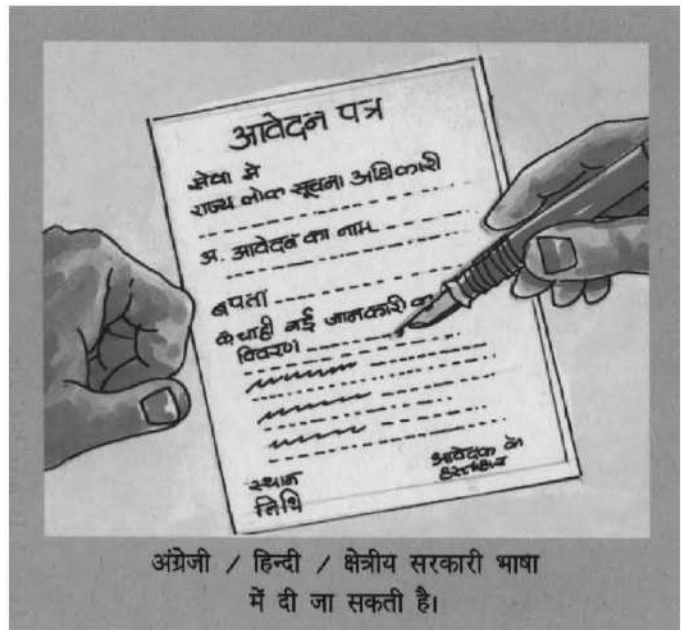 आवेदन पत्र
सेवा मे
राज्य लोक सूचना अधिकारी
अ. आवेदन का नाम
ब पता
क चाही गई जानकारी का
विवरण
स्थान
तिथि
आवेदक के
हस्ताक्षर
अंग्रेजी / हिन्दी / क्षेत्रीय सरकारी भाषा
में दी जा सकती है।